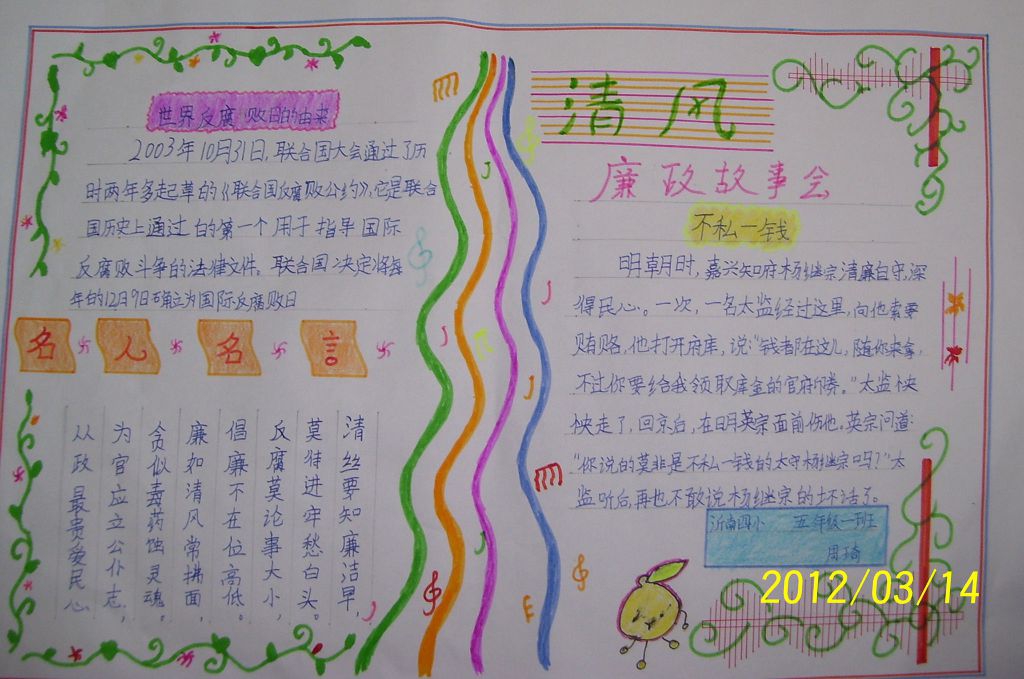 世界反腐败日的由来
2003年10月31日，联合国大会通过了历
时两年多起草的《联合国反腐败公约》，它是联合
国历史上通过的第一个用于指导国际
反腐败斗争的法律文件。联合国决定将每
年的12月9日确立为国际反腐败日
名人名言
清丝要知廉洁早，
莫待进牢愁白头。
反腐莫论事大小，
倡廉不在位高低。
廉如清风常拂面，
贪似毒药蚀灵魂。
为官应立公仆志，
从政最贵爱民心
清风
廉政故事会
不私一钱
明朝时，嘉兴知府杨继宗清廉自守，深
得民心。一次，一名太监经过这里，向他索要
贿赂，他打开府库，说：“钱都在这儿，随你来拿，
不过你要给我领取库金的官府券。”太监怏
怏走了，回京后，在明英宗面前伤他。英宗问道：
“你说的莫非是不私一钱的太守杨继宗吗？”太
监听后，再也不敢说杨继宗的坏话了。
沂南四小 五年级一班
2012/03/14